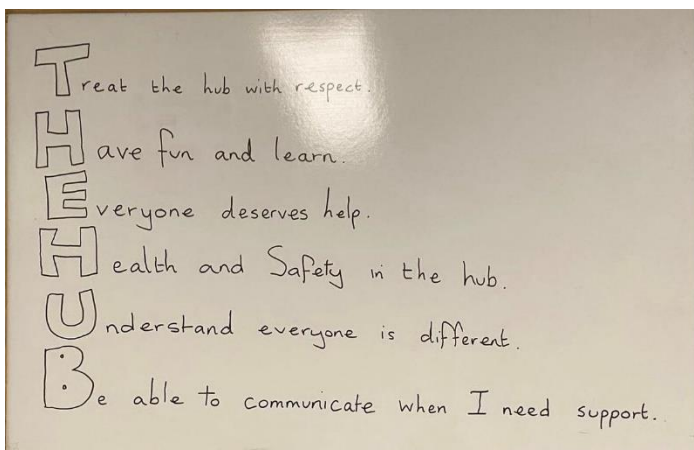 Treat the hub with respect.
Have fun and learn.
Everyone deserves help.
Health and Safety in the hub.
Understand everyone is different.
Be able to communicate when I need support.